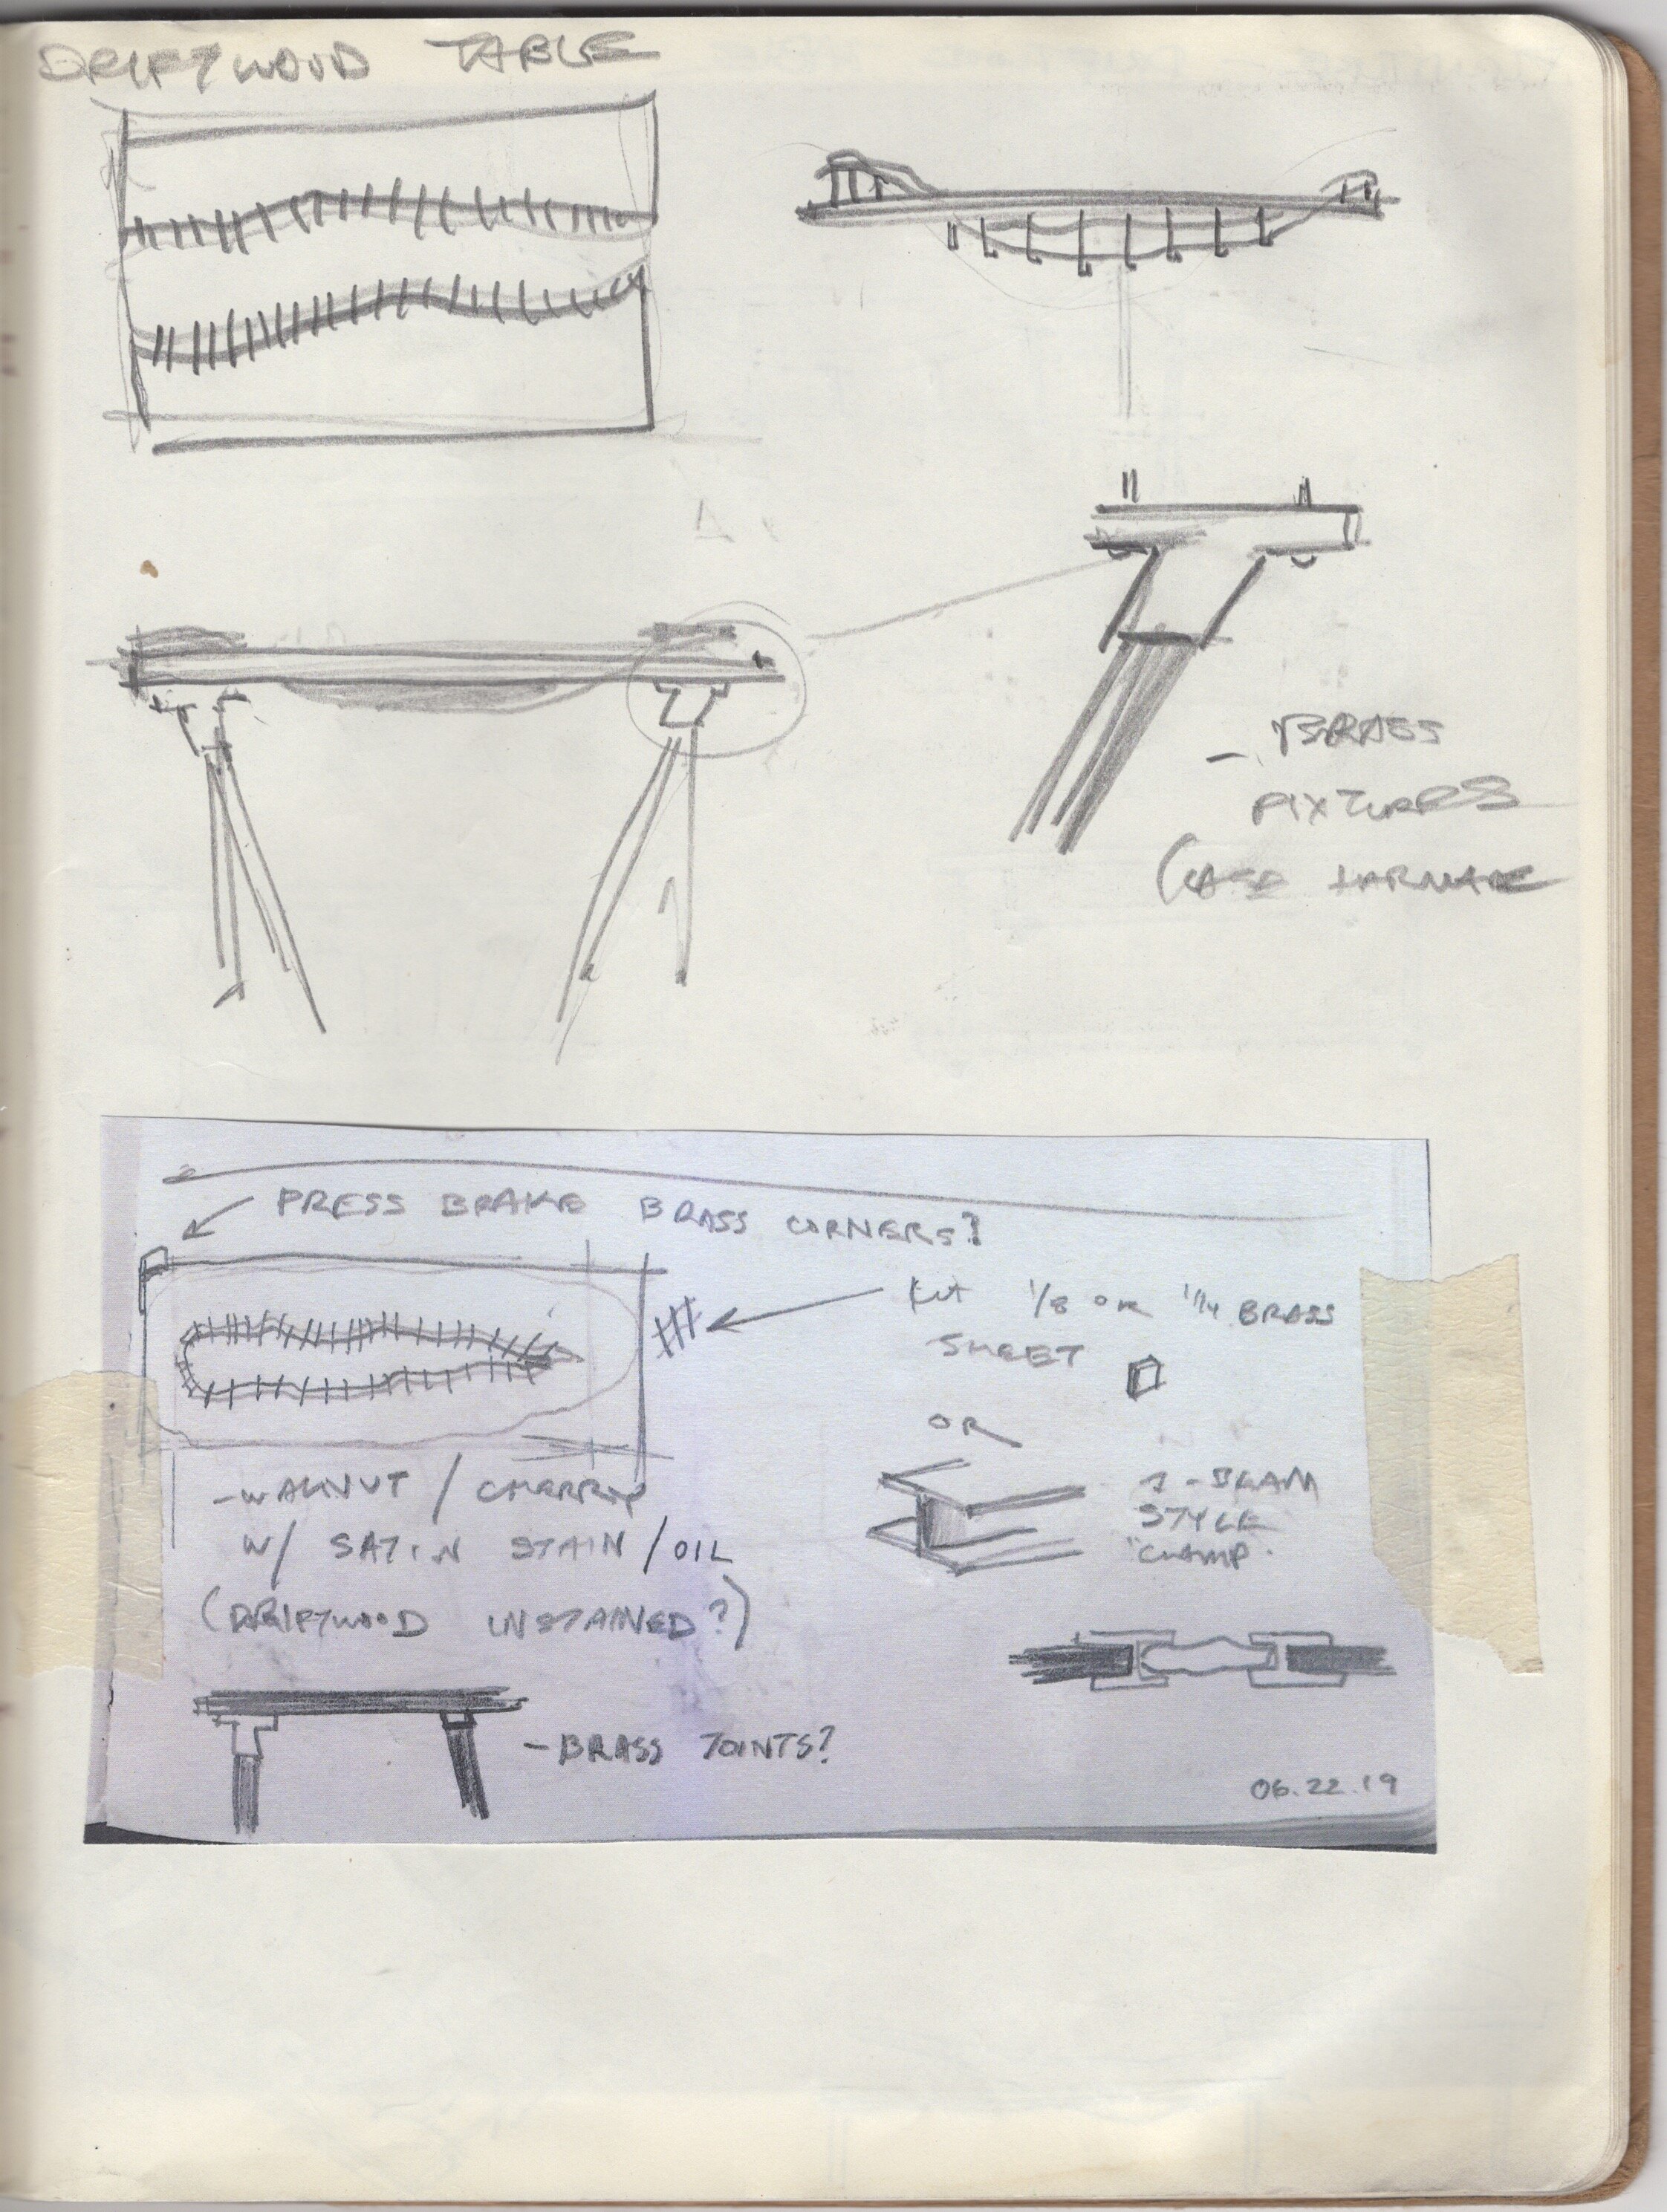 DRIFTWOOD TABLE
- BRASS
FIXTURES
(CASE
PRESS BRAKE BRASS CORNERS?
1/8 OR BRASS
SHEET
OR
I-BEAM
STYLE
"CLAMP.
-WALNUT / CHERRY
W/ SATIN STAIN / OIL
(DRIFTWOOD UNSTAINED?)
- BRASS JOINTS?
06.22.19